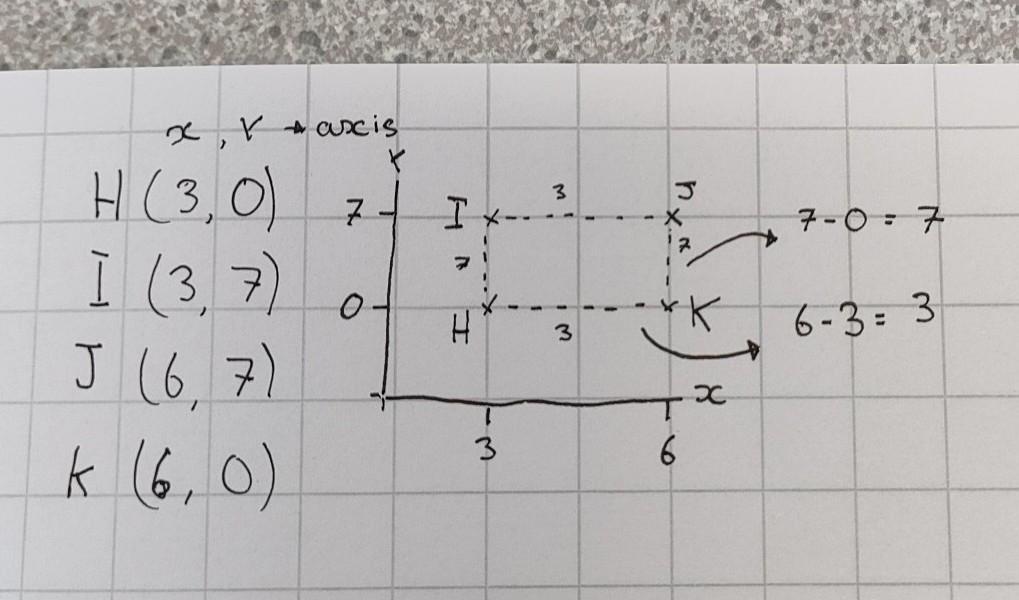 x, Y → axis
H (3, 0)
I (3, 7)
J (6, 7)
K (6, 0)
Y
7
0
I
3
J
7
7
H
3
K
x
3
6
7 - 0 = 7
6 - 3 = 3